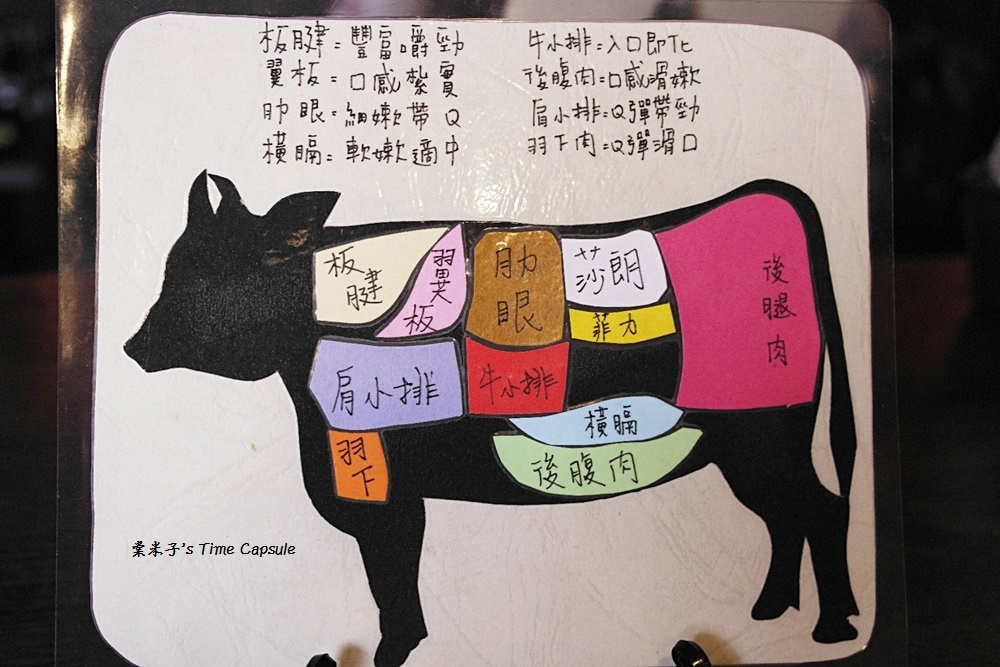 板腱=豐富嚼勁
翼板=口感紮實
肋眼=細嫩帶Q
橫膈=軟嫩適中
牛小排=入口即化
後腹肉=口感滑嫩
肩小排=Q彈帶勁
羽下肉=Q彈滑口
板
腱
翼
板
肋
眼
莎朗
菲力
後
腿
肉
肩小排
牛小排
橫膈
後腹肉
羽
下
米子's Time Capsule